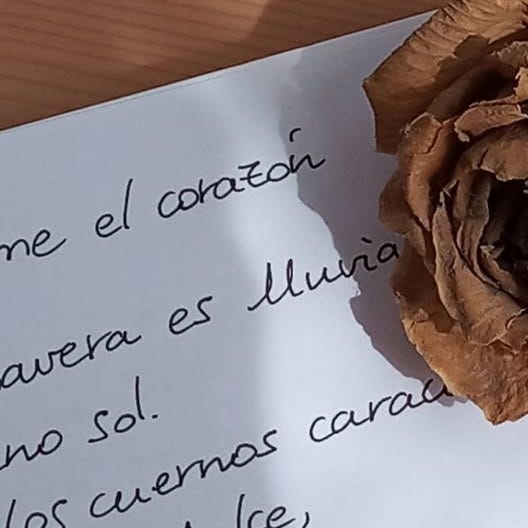 me el corazón
avera es lluvia
no sol.
los cuernos carac
lce,